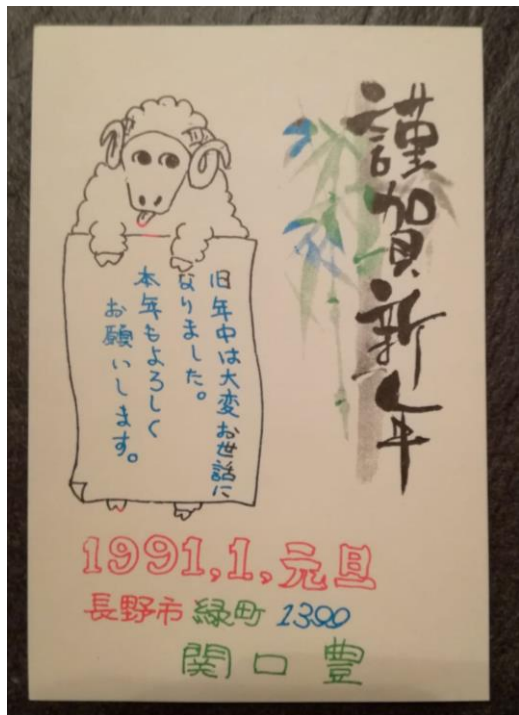 謹賀新年
旧年中は大変お世話に
なりました。
本年もよろしく
お願いします。
1991,1,元旦
長野市 緑町 1300
関口豊